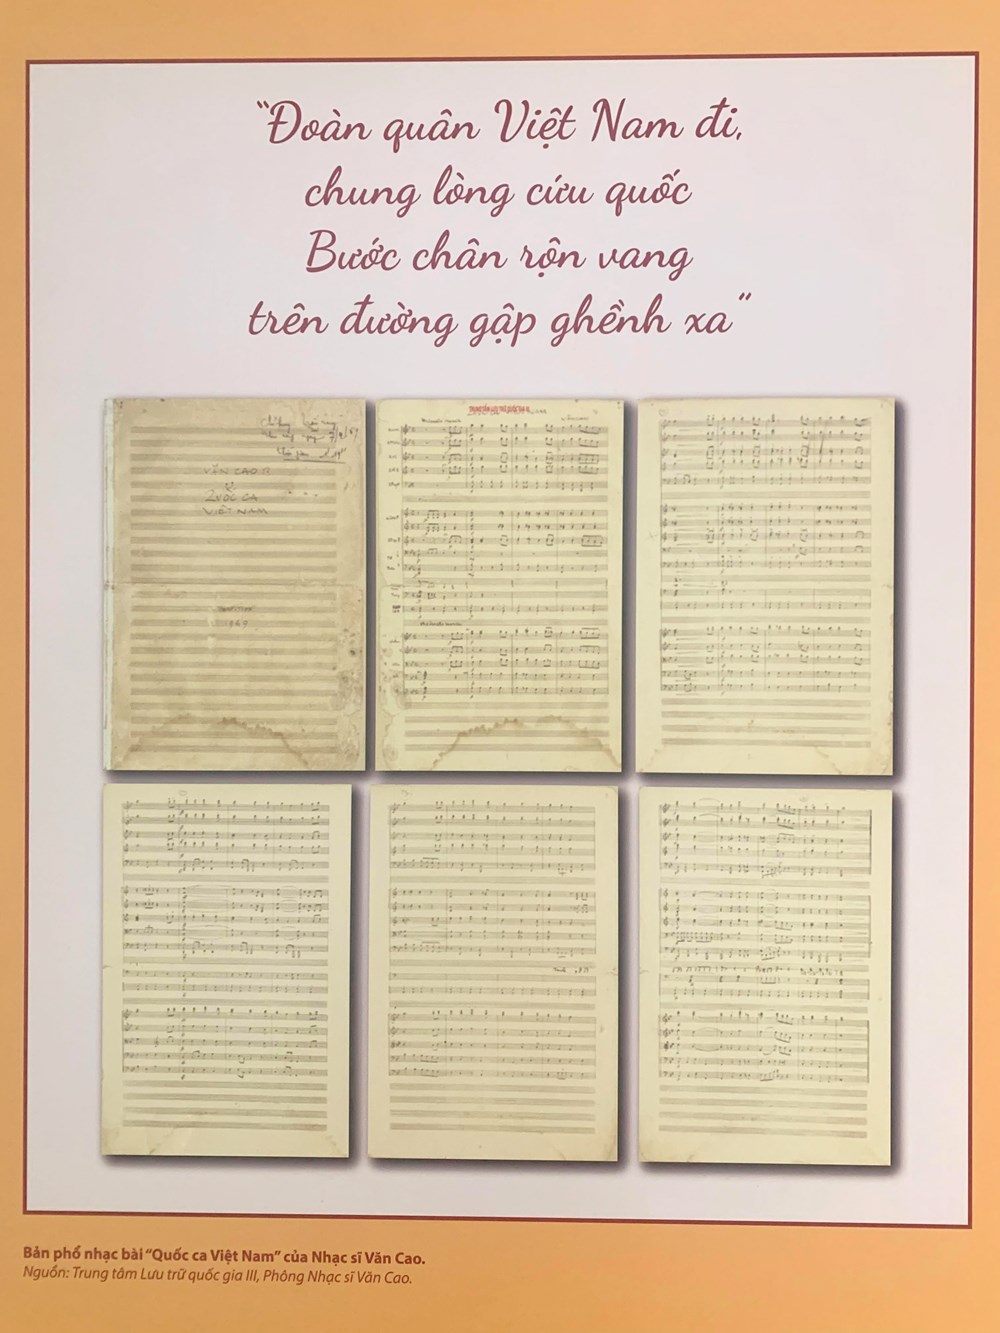 “Đoàn quân Việt Nam đi,
chung lòng cứu quốc
Bước chân rộn vang
trên đường gập ghềnh xa”
TRUNG TÂM LƯU TRỮ QUỐC GIA III
VĂN CAO
QUỐC CA
VIỆT NAM
Bản phổ nhạc bài “Quốc ca Việt Nam” của Nhạc sĩ Văn Cao.
Nguồn: Trung tâm Lưu trữ quốc gia III, Phông Nhạc sĩ Văn Cao.